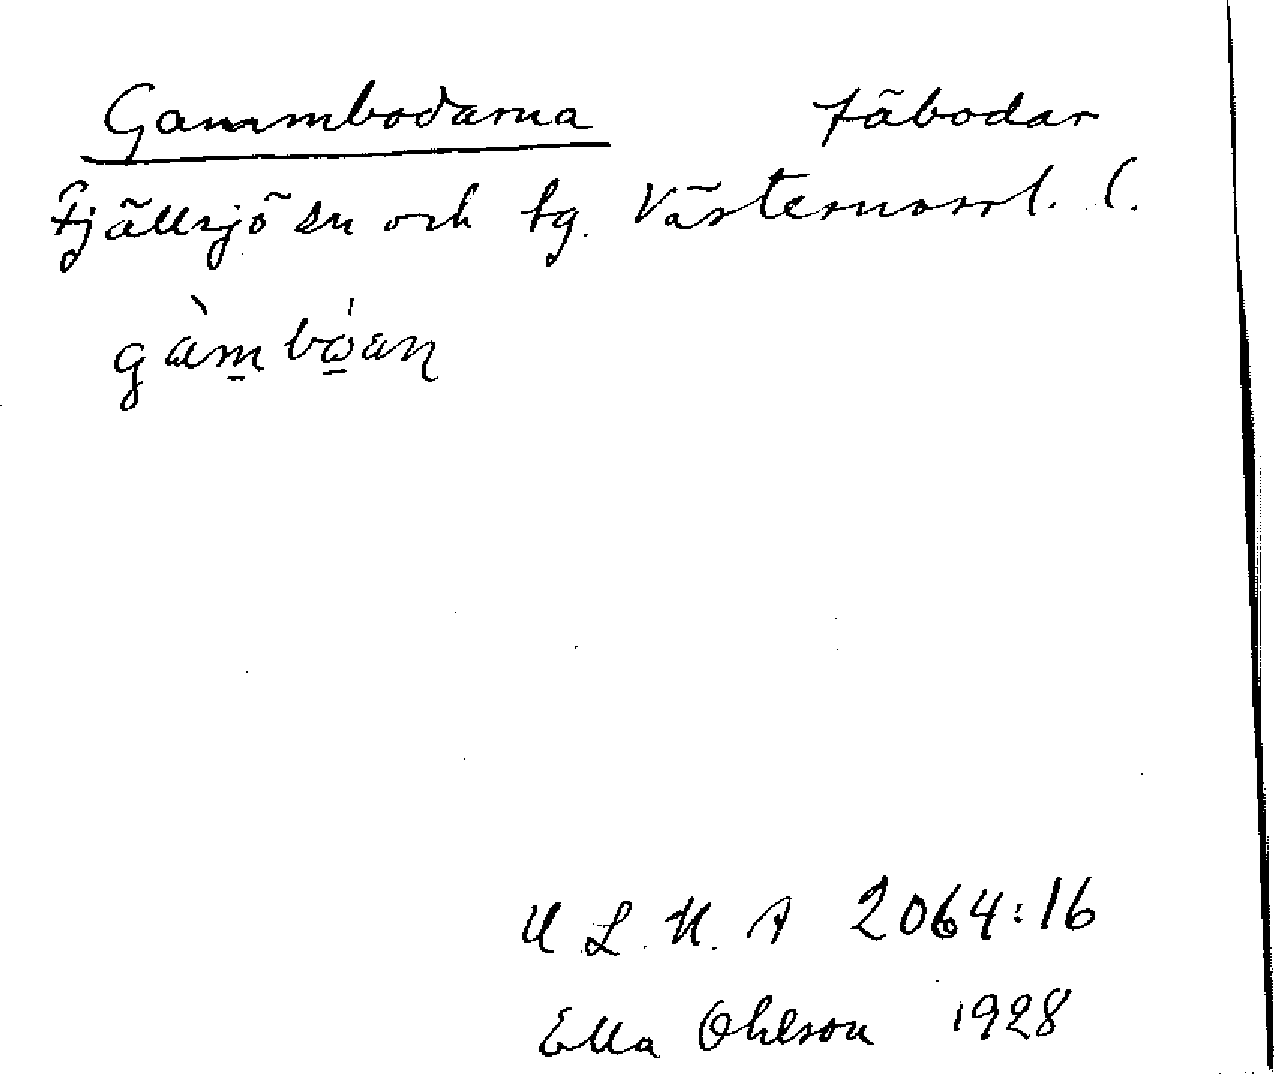 Gammbodarna fäbodar
Fjällsjö sn och tg. Västernorrl. l.
gàm̱bo̱̍aɳ
U L. M. A 2064:16
Ella Ohlson 1928